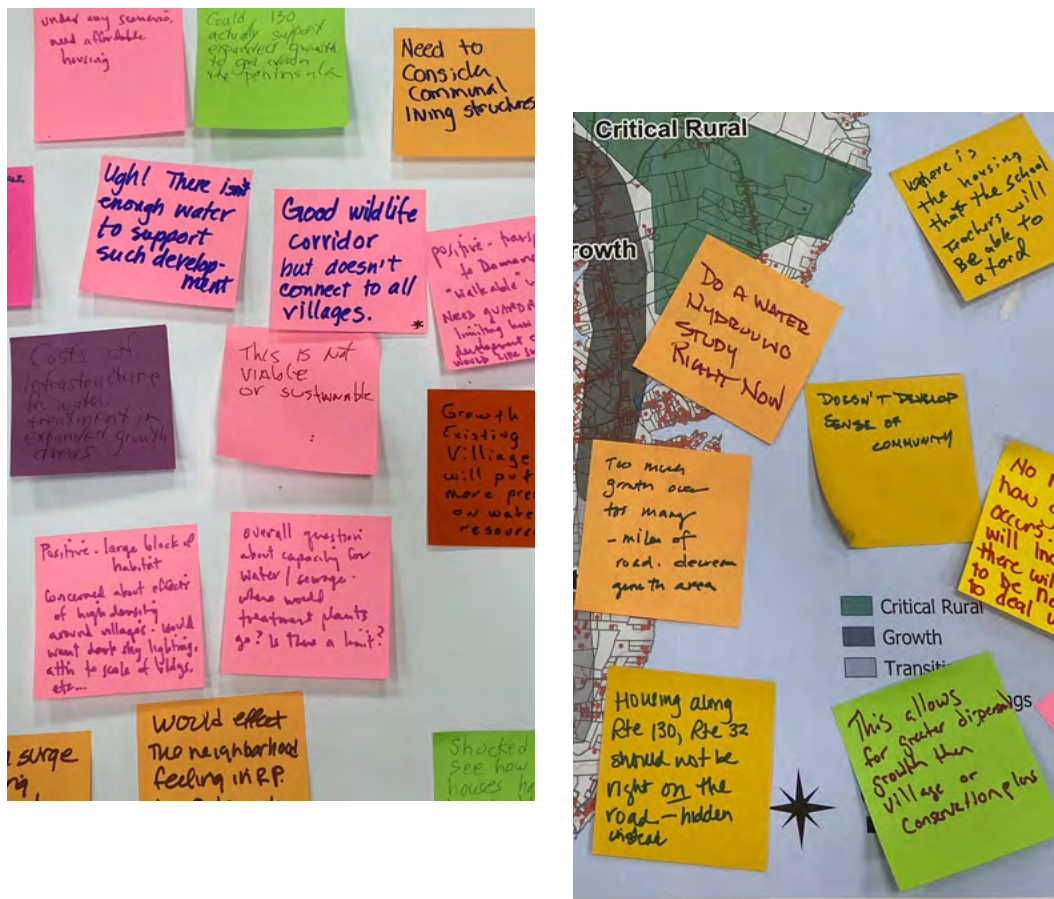 under any scenario,
need affordable
housing
Could 130
actually support
expanded growth
to get down
the peninsula
Need to
Consider
Communal
living structures
Ugh! There isn't
enough water
to support
such develop-
ment
Good wildlife
corridor
but doesn't
connect to all
villages.
*
positive - transp
to Damar
"walkable"
Need guardra
limiting how
development
would like
Costs of
infrastructure
for water
treatment in
expanded growth
areas
This is not
viable
or sustainable
Growth
Existing
Villiage
will put
more pre
on wate
resourc
Positive - large block of
habitat
Concerned about effects
of high density
around villages - would
want dark sky lighting,
attn to scale of bldgs,
etc...
overall question
about capacity for
water / sewage -
where would
treatment plants
go? Is there a limit?
surge
ng
Would effect
The neighborhood
feeling in RP.
Shocked
see how
houses ha
Critical Rural
rowth
Where is
the housing
that the school
Teachers will
Be able to
aford
DO A WATER
HYDROLIND
STUDY
RIGHT NOW
DOESN'T DEVELOP
SENSE OF
COMMUNITY
Too much
growth over
too many
- miles of
road. decrease
growth area
No
how
occurs.
will inc
there wil
to be ne
to deal
Critical Rural
Growth
Transiti
ngs
Housing along
Rte 130, Rte 32
should not be
right on the
road - hidden
instead
This allows
for greater dispersal
growth then
village or
Conservation plans